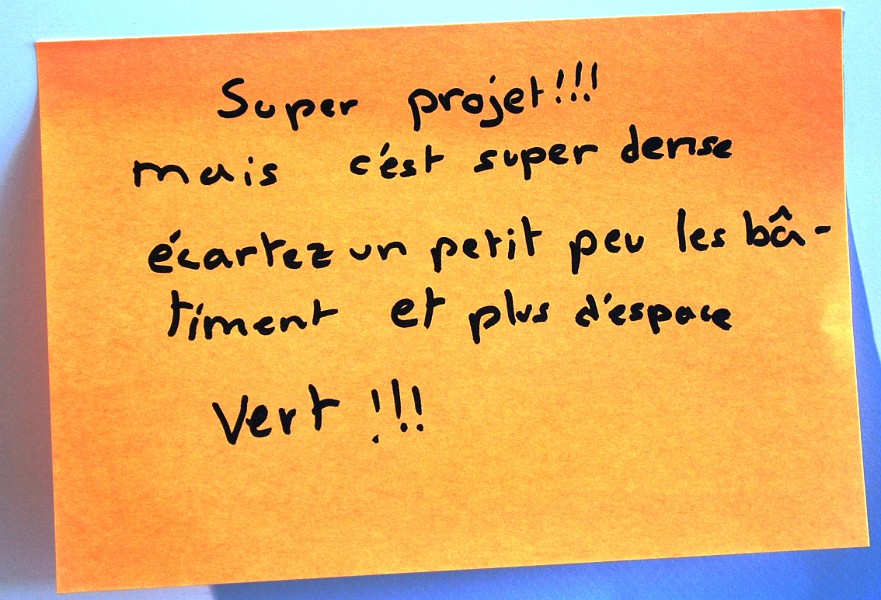 Super projet!!!
mais c'est super dense
écartez un petit peu les bâ-
timent et plus d'espace
Vert !!!